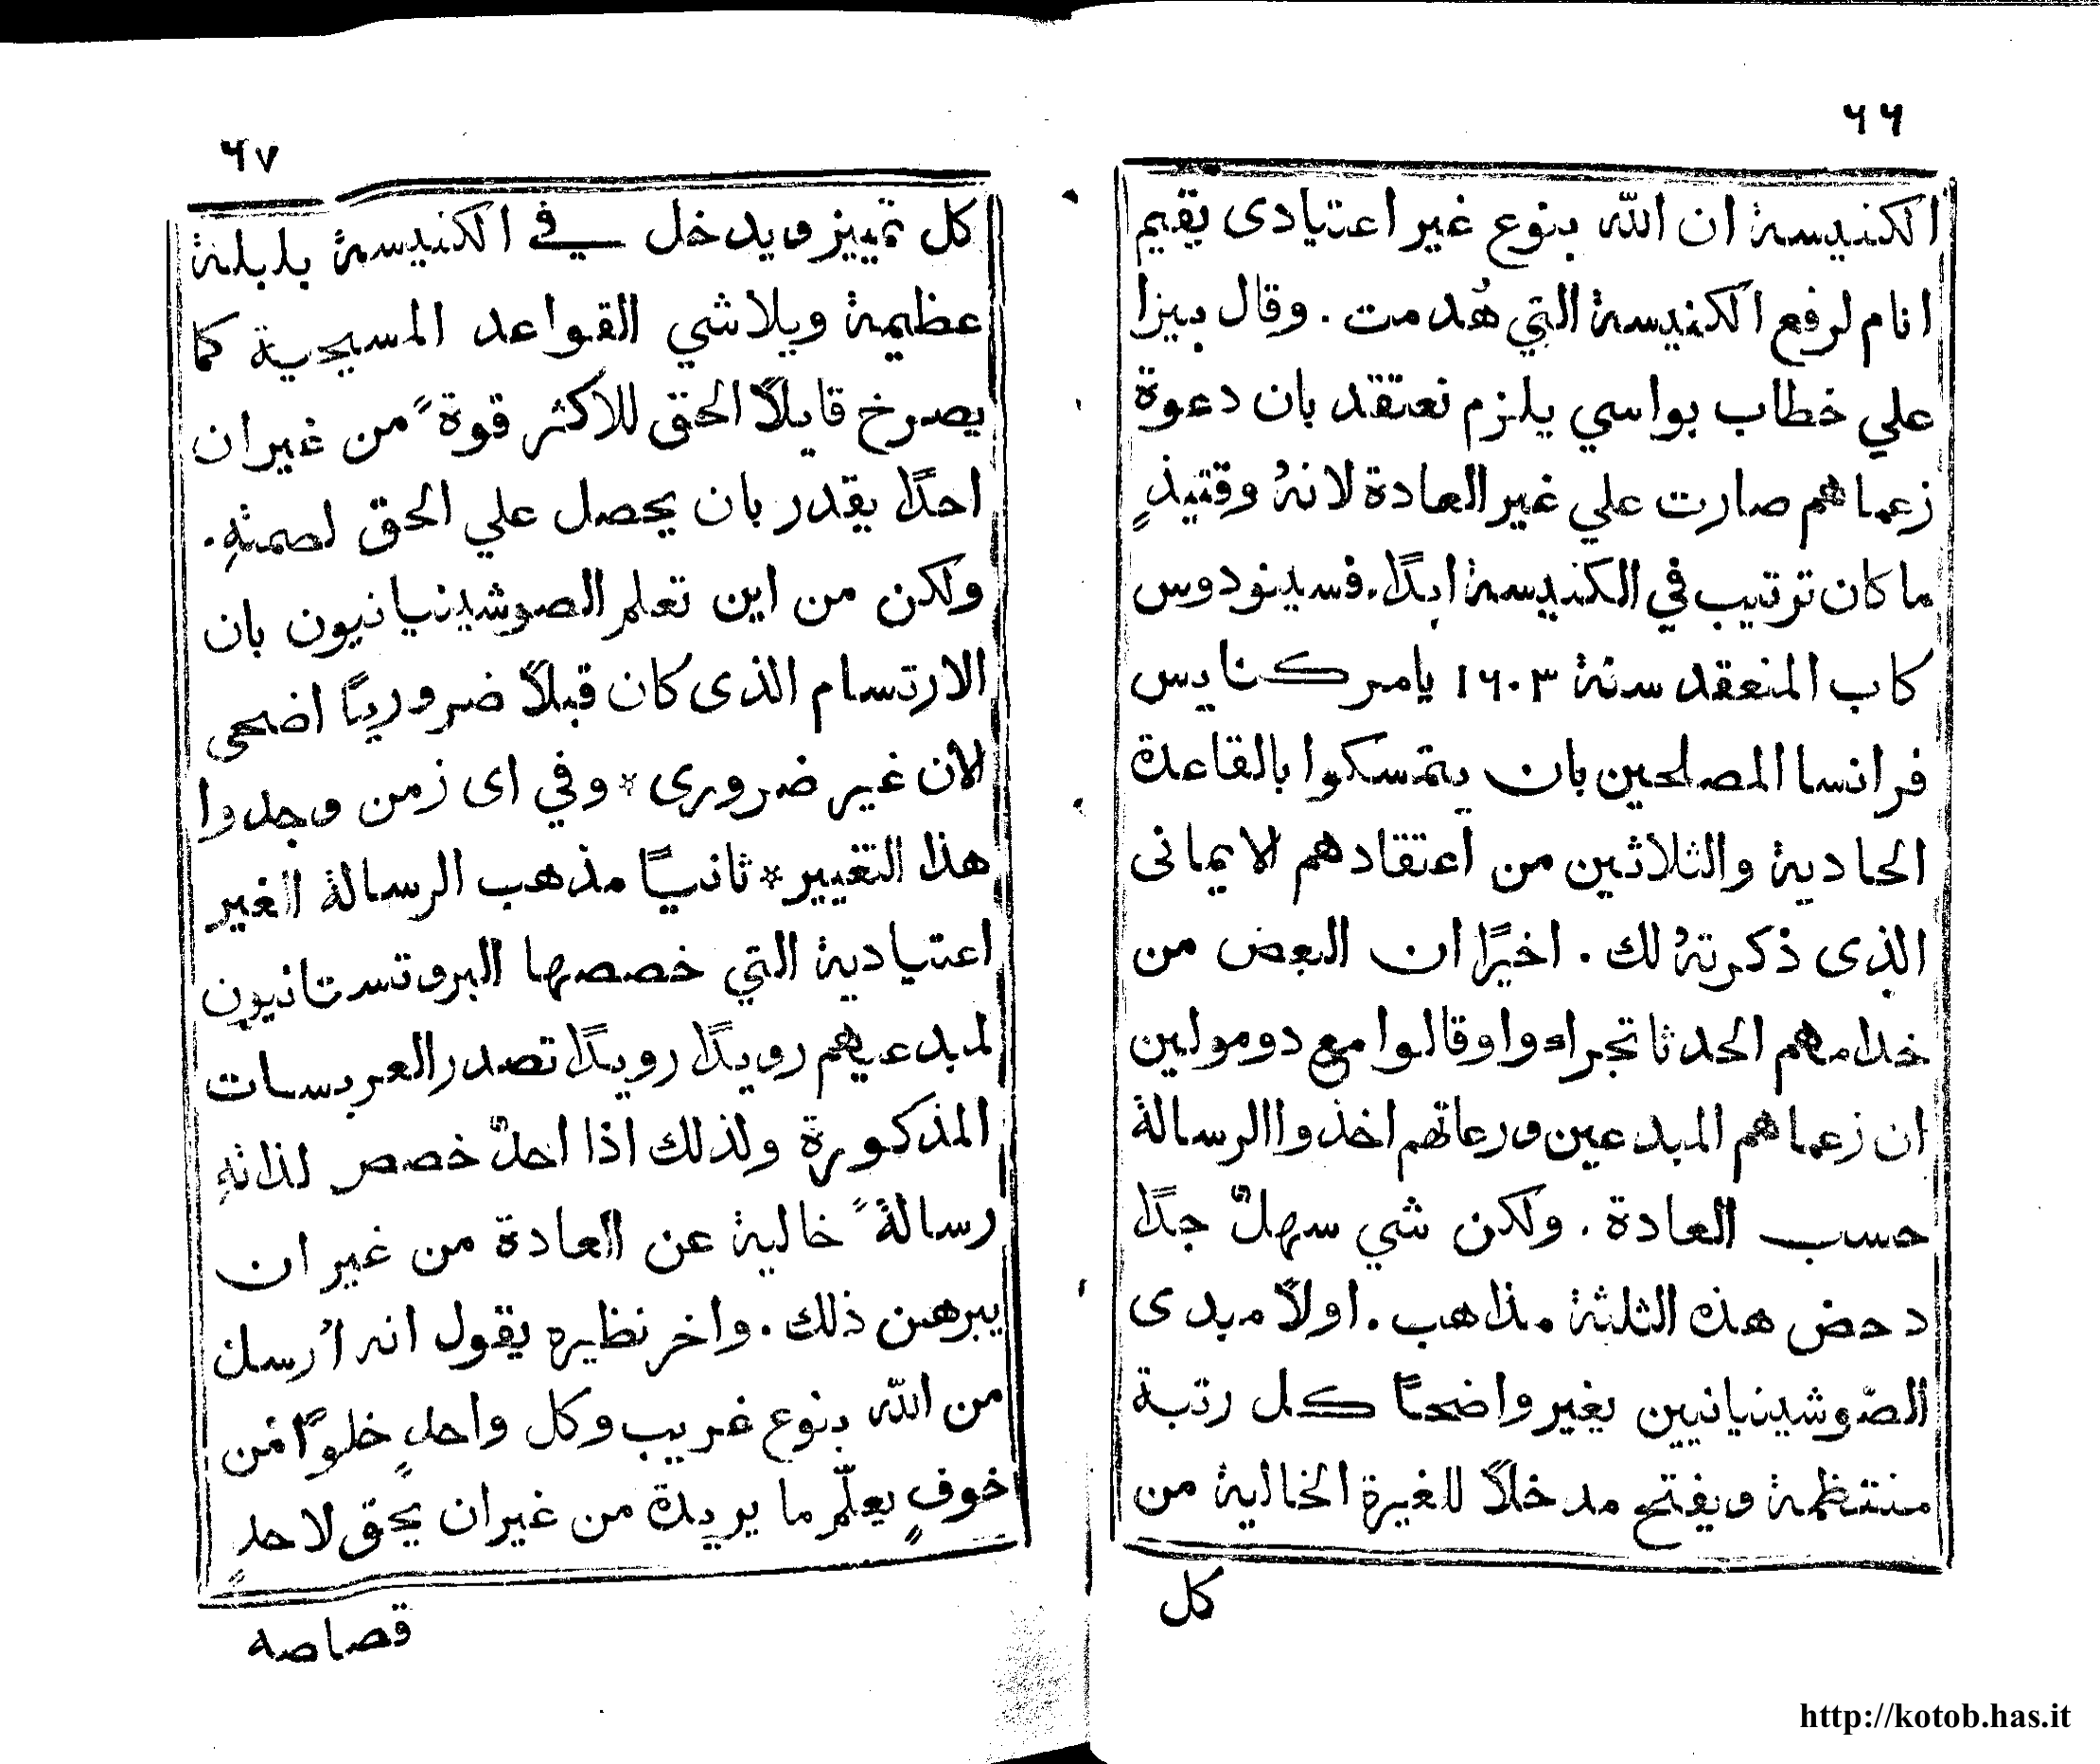 ٦٦
الكنيسة ان الله بنوع غير اعتيادى يقيم
انام لرفع الكنيسة التي هُدمت . وقال بيزا
علي خطاب بواسي يلزم نعتقد بان دعوة
زعماهم صارت علي غير العادة لانهُ وقتيذٍ
ما كان ترتيب في الكنيسة ابدًا . فسينودوس
كاب المنعقد سنة ١٦٠٣ يامر كنايس
فرانسا المصلحين بان يتمسكوا بالقاعدة
الحادية والثلاثين من اعتقادهم الايمانى
الذى ذكرتهُ لك . اخيرًا ان البعض من
خدامهم الحدثا تجراءوا وقالوا مع دومولين
ان زعماهم المبدعين ورعاتهم اخذوا الرسالة
حسب العادة . ولكن شي سهلٌ جدًا
دحض هذه الثلثة مذاهب . اولاً مبدى
الصّوشينيانيين يغير واضحًا كل رتبة
منتظمة ويفتح مدخلاً للغيرة الخالية من
كل
٦٧
كل تمييز ويدخل في الكنيسة بلبلة
عظيمة ويلاشي القواعد المسيحية كما
يصرخ قايلاً الحق للاكثر قوةً من غير ان
احدًا يقدر بان يحصل علي الحق لصمتهِ .
ولكن من اين تعلم الصوشينيانيون بان
الارتسام الذى كان قبلاً ضروريًا اضحى
الان غير ضرورى * وفي اى زمن وجدوا
هذا التغيير * ثانيًا مذهب الرسالة الغير
اعتيادية التي خصصها البروتستانيون
لمبدعيهم رويدًا رويدًا تصدر العربسات
المذكورة ولذلك اذا احدٌ خصص لذاتهِ
رسالةً خالية عن العادة من غير ان
يبرهن ذلك . واخر نظيره يقول انه اُرسل
من الله بنوع غريب وكل واحدٍ خلوًا من
خوفٍ يعلّم ما يريدة من غير ان يحق لاحدٍ
قصاصه
http://kotob.has.it